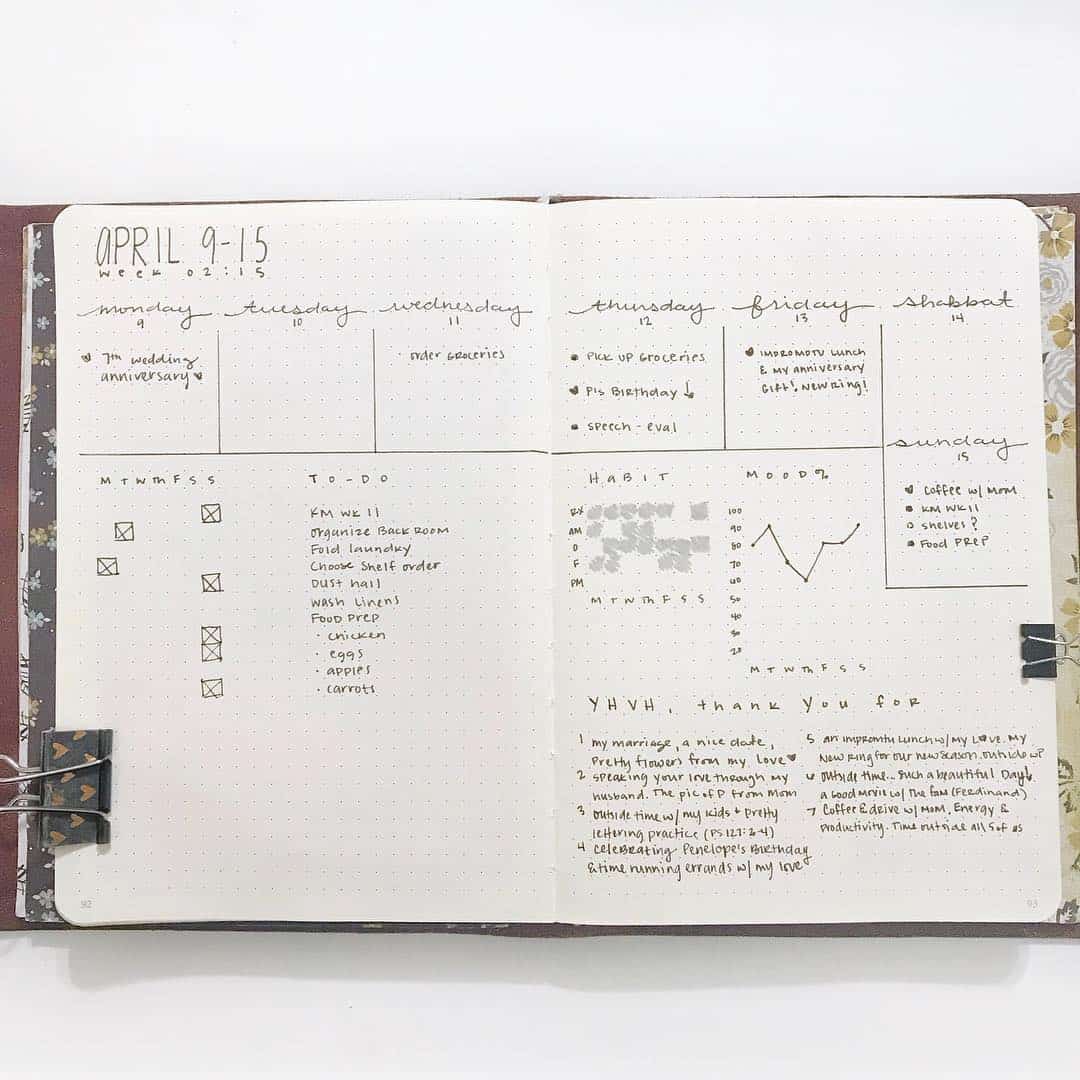 APRIL 9-15
week 02:15
monday
9
7th wedding
anniversary
tuesday
10
wednesday
11
· order groceries
M T W Th F S S
TO-DO
KM WK 11
organize Back room
Fold laundry
Choose Shelf order
Dust hall
wash linens
Food Prep
· chicken
· eggs
· apples
· carrots
92
thursday
12
• Pick up Groceries
P's Birthday
• speech - eval
friday
13
IMPROMPTU LUNCH
& my anniversary
Gift! New ring!
shabbat
14
sunday
15
Coffee w/ mom
• KM WK 11
○ shelves?
• Food PREP
HABIT
RX
AM
D
F
PM
M T W Th F S S
MOOD%
100
90
80
70
60
50
40
30
20
M T W Th F S S
YHVH, thank you for
1 my marriage, a nice date,
Pretty flowers from my love
2 speaking your love through my
husband. The pic of P from Mom
3 outside time w/ my kids + Pretty
lettering practice (PS 127:3-4)
4 celebrating Penelope's Birthday
& time running errands w/ my love
5 an impromtu lunch w/ my Love. My
New ring for our new season. outside w/P
6 outside time... such a beautiful Day!
a Good movie w/ the fam (Ferdinand)
7 Coffee & drive w/ Mom, Energy &
Productivity. Time outside all 5 of us
93